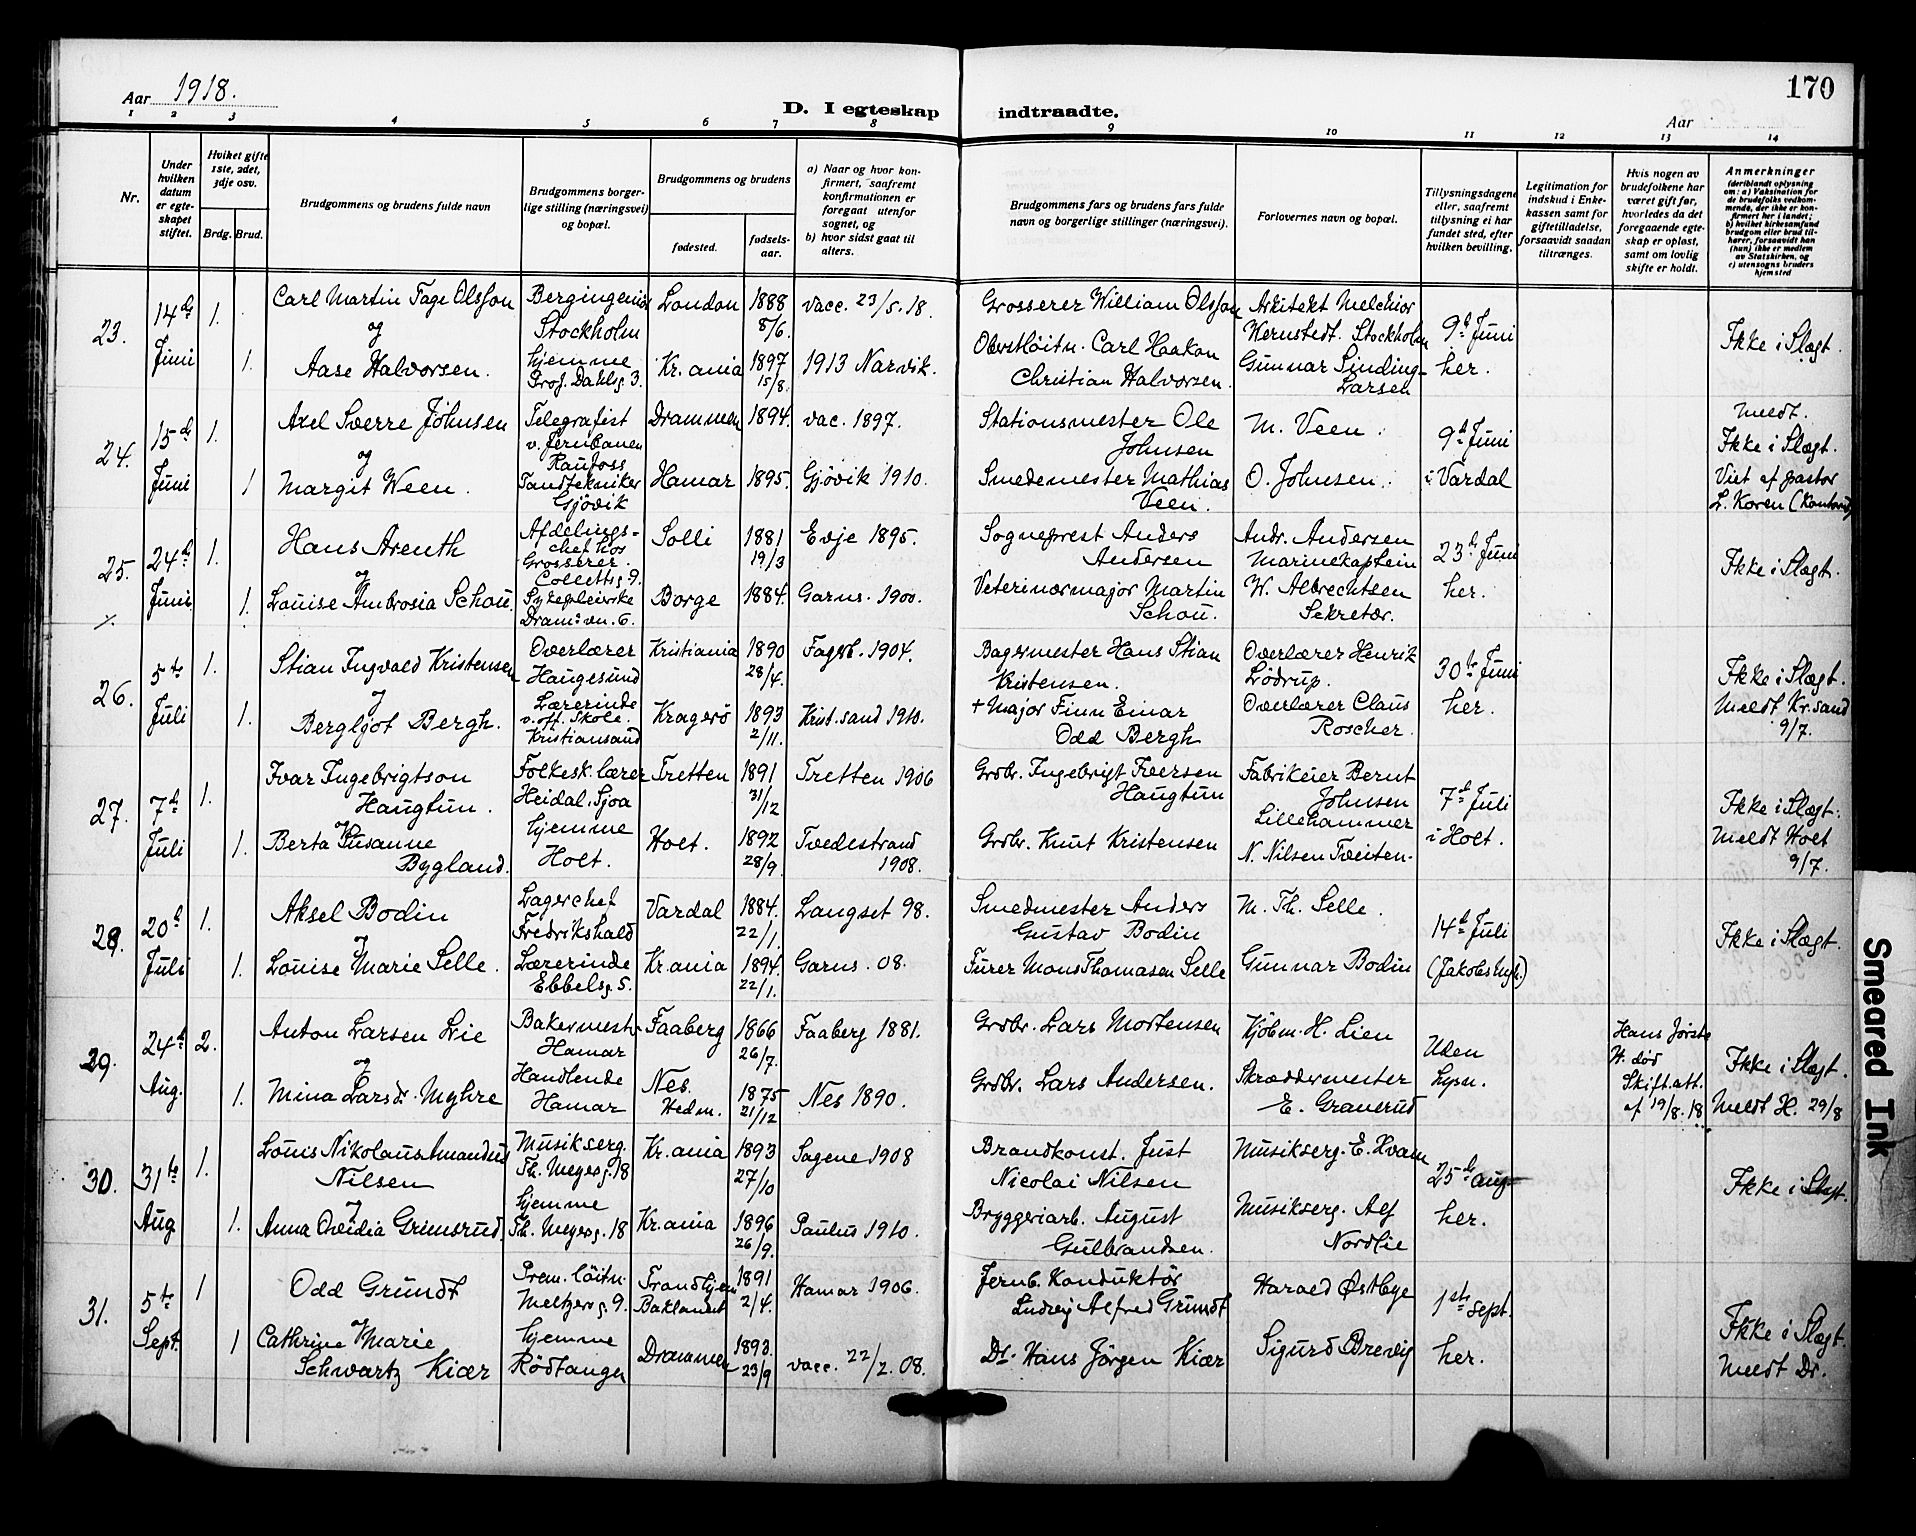 Aar 1918.
D. I egteskap indtraadte.
Aar
170
1 2 3 4 5 6 7 8 9 10 11 12 13 14
Nr.
Under hvilken datum er egteskapet stiftet.
Hvilket gifte 1ste, 2det, 3dje osv.
Brdg. Brud.
Brudgommens og brudens fulde navn
Brudgommens borgerlige stilling (næringsvei) og bopæl.
Brudgommens og brudens
fødested.
fødselsaar.
a) Naar og hvor konfirmert, saafremt konfirmationen er foregaat utenfor sognet, og
b) hvor sidst gaat til alters.
Brudgommens fars og brudens fars fulde navn og borgerlige stillinger (næringsvei).
Forlovernes navn og bopæl.
Tillysningsdagene eller, saafremt tillysning ei har fundet sted, efter hvilken bevilling.
Legitimation for indskud i Enkekassen samt for giftetilladelse, forsaavidt saadan tiltrænges.
Hvis nogen av brudefolkene har været gift før, hvorledes da det foregaaende egteskap er opløst, samt om lovlig skifte er holdt.
Anmerkninger
(deriblandt oplysning om: a) Vaksination for de brudefolks vedkommende, der ikke er konfirmert her i landet; b) hvilket kirkesamfund brudgom eller brud tilhører, forsaavidt han (hun) ikke er medlem av Statskirken, og c) utensogns bruders hjemsted
23. 14de Juni 1. Carl Martin Tage Olsson
og
1. Aase Halvorsen.
Bergingeniør Stockholm
hjemme Prof. Dahlsg. 3.
London 1888 8/6.
Kr.ania 1897 15/8.
vacc. 23/5.18.
1913 Narvik.
Grosserer William Olsson
Oberstløitn. Carl Haakon Christian Halvorsen.
Arkitekt Melchior Wernstedt. Stockholm
Gunnar Sinding-Larsen
9de Juni her.
Ikke i Slægt.
24. 15de Juni 1. Axel Sverre Johnsen
og
1 Margit Ween.
Telegrafist v. Jernbanen Raufoss
Tandtekniker Gjövik
Drammen 1894.
Hamar 1895.
vac. 1897.
Gjövik 1910.
Stationsmester Ole Johnsen
Smedemester Mathias Veen.
M. Veen.
O. Johnsen.
9de Juni i Vardal
Meldt.
Ikke i Slægt.
Viet af pastor L. Koren
25. 24de Juni 1. Hans Arenth
og
1. Louise Ambrosia Schou.
Afdelingschef hos Grosserer. Collettsg. 9.
Sykepleierske Dram:vn. 6.
Solli 1881 19/3
Borge 1884.
Evje 1895.
Garns. 1900.
Sogneprest Anders Andersen
Veterinærmajor Martin Schou.
Andr. Andersen Marinekaptein
W. Albrechtsen Sekretær.
23de Juni her.
Ikke i Slægt.
26. 5te Juli 1. Stian Ingvald Kristensen
og
1. Bergljot Bergh.
Overlærer Haugesund
Lærerinde v. off. Skole. Kristiansand
Kristiania 1890 28/4.
Kragerö 1893 2/11.
Fagerb. 1904.
Krist.sand 1910.
Bagermester Hans Stian Kristensen.
+ Major Finn Einar Odd Bergh
Overlærer Henrik Lödrup.
Overlærer Claus Roscher.
30te Juni her.
Ikke i Slægt.
Meldt Kr.sand 9/7.
27. 7de Juli 1. Ivar Ingebrigtson Haugtun.
og
1. Berta Susanne Bygland.
Folkesk.lærer Heidal, Sjoa
hjemme Holt.
Tretten 1891 31/12
Holt. 1892 28/9.
Tretten 1906
Tvedestrand 1908.
Grdbr. Ingebrigt Iversen Haugtun
Grdbr. Knut Kristensen
Fabrikeier Bernt Johnsen Lillehammer
N. Nilsen Tveiten.
7de Juli i Holt.
Ikke i Slægt.
Meldt Holt 9/7.
28. 20de Juli 1. Aksel Bodin
og
1. Louise Marie Selle.
Lagerchef Fredrikshald
Lærerinde Ebbelsg. 5.
Vardal 1884. 22/1.
Kr.ania 1894. 22/1.
Langset 98.
Garns. 08.
Smedmester Anders Gustav Bodin
Furer Mons Thomasen Selle
M. Th. Selle.
Gunnar Bodin
14de Juli (Jakobs
Ikke i Slægt.
29. 24de Aug. 2. Anton Larsen Lie
og
1. Mina Larsd. Myhre
Bakermestr Hamar
Handlende Hamar
Faaberg 1866 26/7.
Nes. Hedm. 1875 21/12
Faaberg 1881.
Nes 1890.
Grdbr. Lars Mortensen
Grdbr. Lars Andersen.
Kjöbm. H. Lien
Skræddermester E. Granerud
Uden lysn.
Hans förste H. död Skift.att. af 19/8.18.
Ikke i Slægt.
Meldt H. 29/8
30. 31te Aug 1. Louis Nikolaus Amandus Nilsen
og
1. Anna Ovidia Grimsrud.
Musikserg. Th. Meyersg. 18
hjemme Th. Meyersg. 18
Kr.ania 1893 27/10
Kr.ania 1896 26/9.
Sagene 1908
Paulus 1910.
Brandkonst. Just Nicolai Nilsen
Bryggeriarb. August Gulbrandsen.
Musikserg. E. Hvam
Musikserg. Alf Nordlie
25de aug her.
Ikke i Slægt.
31. 5te Sept. 1 Odd Grundt
og
1 Cathrine Marie Schwartz Kiær
Prem. löitn. Meltzersg. 9.
hjemme Rödtangen
Trondhjem Baklandet 1891 2/4.
Drammen 1893. 23/9
Hamar 1906.
vacc. 22/2.08.
Jernb. Konduktör Ludvig Alfred Grundt
Dr. Hans Jörgen Kiær
Harald Østbye
Sigurd Brevig
1ste Sept. her.
Ikke i Slægt.
Meldt Dr.
Smeared Ink